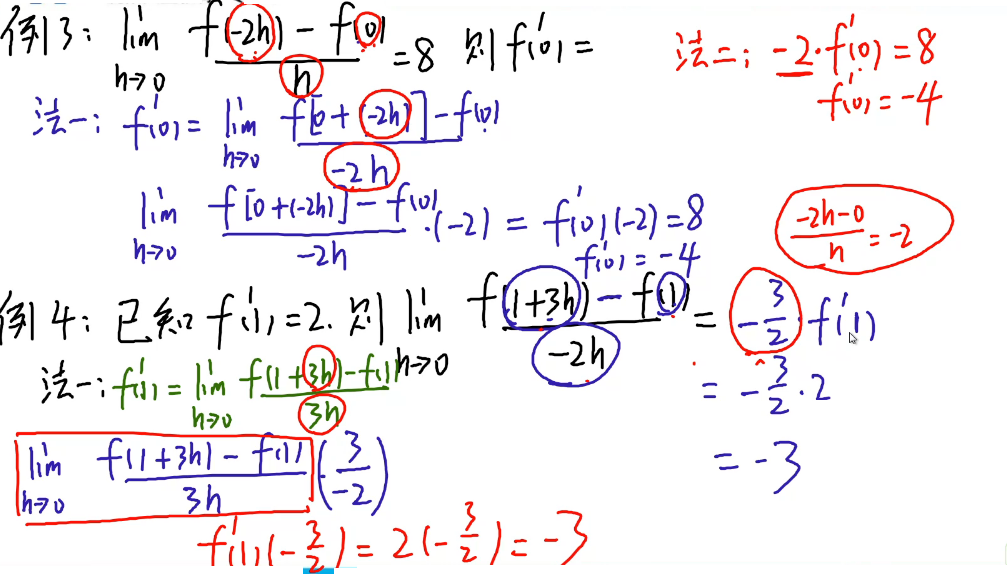 例3: lim h→0 f(-2h) - f(0) / h = 8 则 f'(0) =
法二: -2·f'(0) = 8
f'(0) = -4
法一: f'(0) = lim h→0 f[0 + (-2h)] - f(0) / -2h
lim h→0 f[0+(-2h)] - f(0) / -2h ·(-2) = f'(0)(-2) = 8
f'(0) = -4
-2h-0 / h = -2
例4: 已知 f'(1) = 2. 则 lim h→0 f(1+3h) - f(1) / -2h = -3/2 · f'(1)
= -3/2 · 2
= -3
法一: f'(1) = lim h→0 f(1+3h) - f(1) / 3h
lim h→0 f(1+3h) - f(1) / 3h (3/-2)
f'(1)(-3/2) = 2(-3/2) = -3